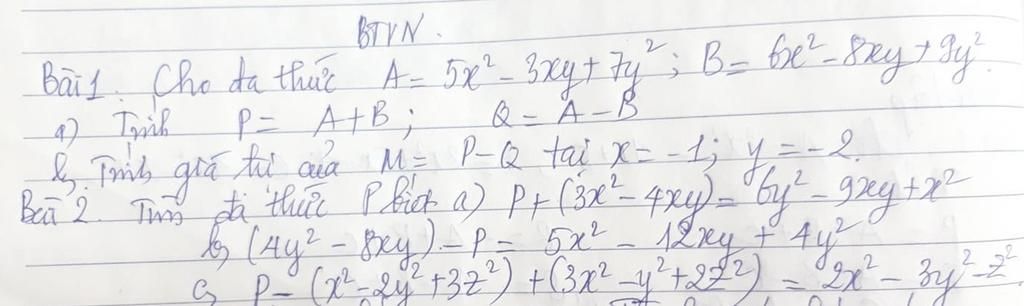 BTVN.
Bài 1. Cho đa thức A = 5x² - 3xy + 7y²; B = 6x² - 8xy + 9y².
a) Tính P = A + B; Q = A - B
b, Tính giá trị của M = P - Q tại x = -1; y = -2.
Bài 2. Tìm đa thức P biết a) P + (3x² - 4xy) = 6y² - 9xy + x²
b, (4y² - 8xy) - P = 5x² - 12xy + 4y²
c, P - (x² - 2y² + 3z²) + (3x² - y² + 2z²) = 2x² - 3y² - z²